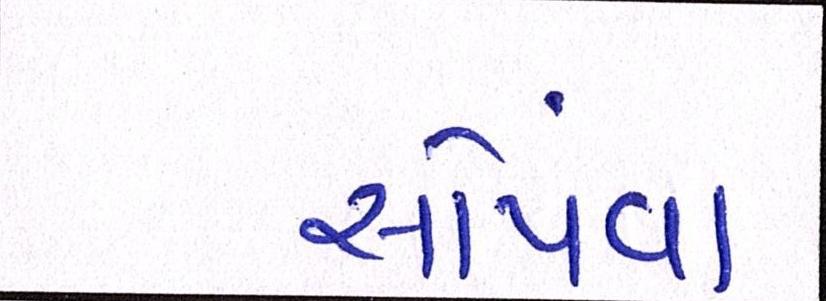 સોપંવા